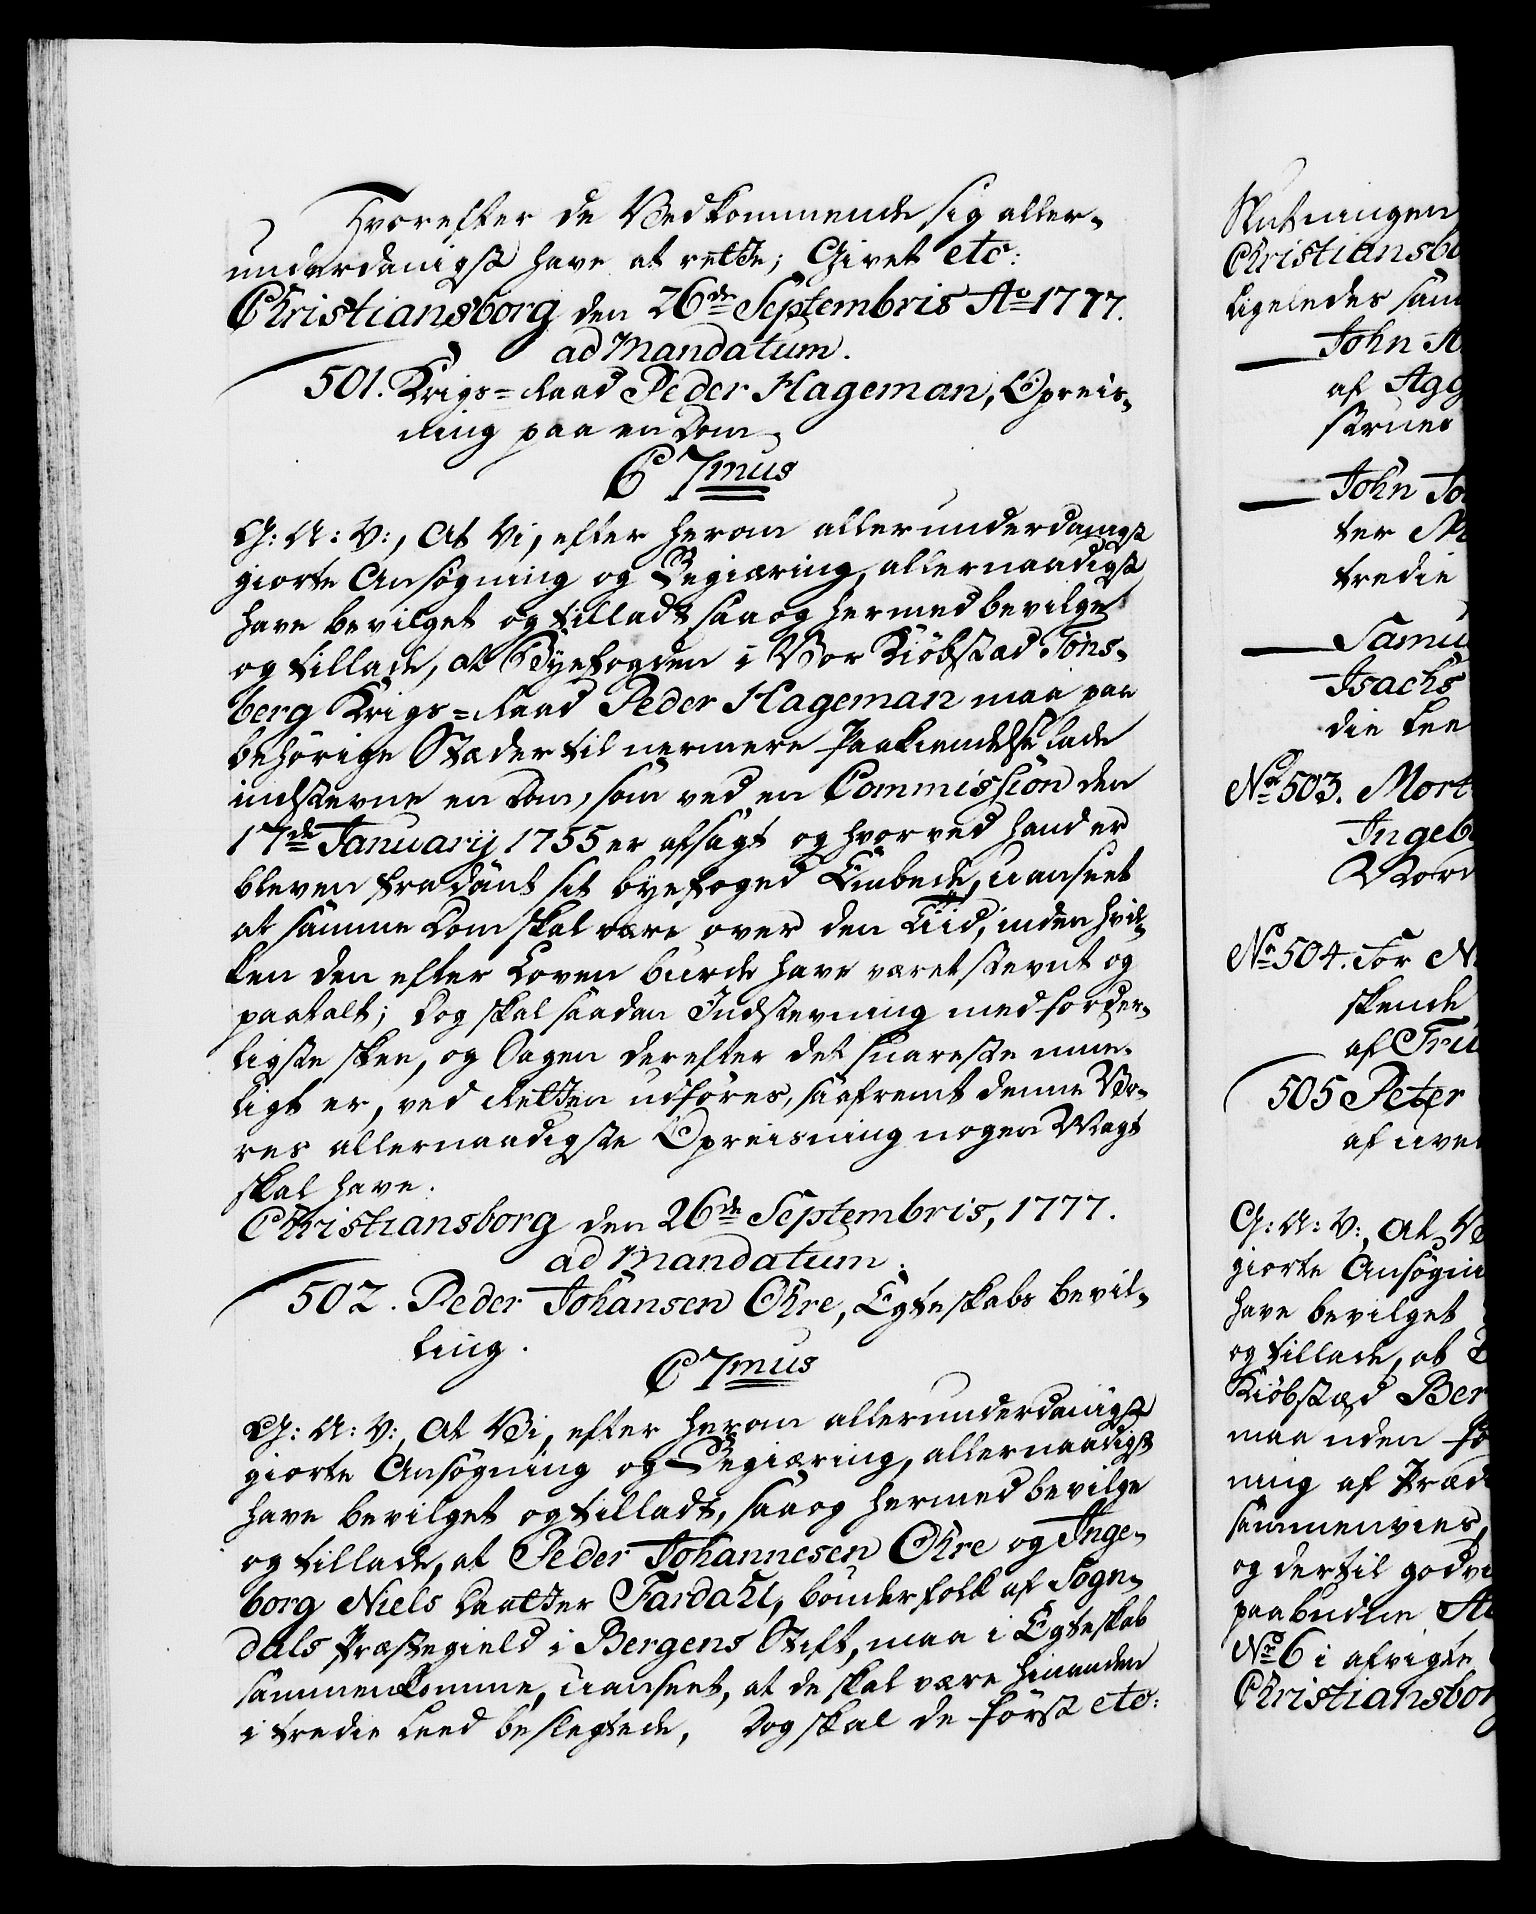 Hvorefter de Vedkommende sig aller-
underdanigst have at rette; Givet etc:
Christiansborg den 26de Septembris Ao 1777.
ad Mandatum.
501. Krigs=Raad Peder Hageman, Opreis-
ning paa en Dom.
C 7mus
G: A: V:, At Vi, efter herom allerunderdanigst
giorte Ansøgning og Begiæring, allernaadigst
have bevilget og tilladt saa og hermed bevilge
og tillade, at Byefogden i Vor Kiøbstad Tøns-
berg Krigs=Raad Peder Hageman maa paa
behørige Stæder til nermere Paakiendelse lade
indstevne en Dom, som ved en Commission den
17de Januarij 1755 er afsagt og hvorved hand er
bleven fradømt sit byefoged Embede, uanseet
at samme Dom skal være over den Tiid, inden hvil-
ken den efter Loven burde have været stevnt og
paatalt; Dog skal saadan Indstevning med forder-
ligste skee, og Sagen derefter det snareste mue-
ligt er, ved Retten udføres, saafremt denne Vo-
res allernaadigste Opreisning nogen Magt
skal have.
Christiansborg den 26de Septembris, 1777.
ad Mandatum.
502. Peder Johansen Ohre, Egteskabs bevil-
ling.
C 7mus
G: A: V:, At Vi, efter herom allerunderdanigst
giorte Ansøgning og Begiæring, allernaadigst
have bevilget og tilladt, saa og hermed bevilge
og tillade, at Peder Johannesen Ohre og Inge-
borg Niels Daatter Fardahl, bønderfolk af Sogn-
dals Præstegield i Bergens Stift, maa i Egteskab
sammenkomme, uanseet, at de skal være hinanden
i tredie Leed beslegtede, Dog skal de først etc:
Slutningen
Christiansbo
ligeledes sam
John
af Agg
John
ter
tredie
Samu
Isachs
die Lee
No 503. Mort
Ingeb
Nord
No 504. Tor
skende
af
505 Peter
af
G: A: V:, At
giorte Ansøgni
have bevilget
og tillade, at
Kiøbstæd Ber
maa uden
ning af Præd
sammenvies,
og dertil godv
paabudne
No 6 i afvigte
Christiansborg